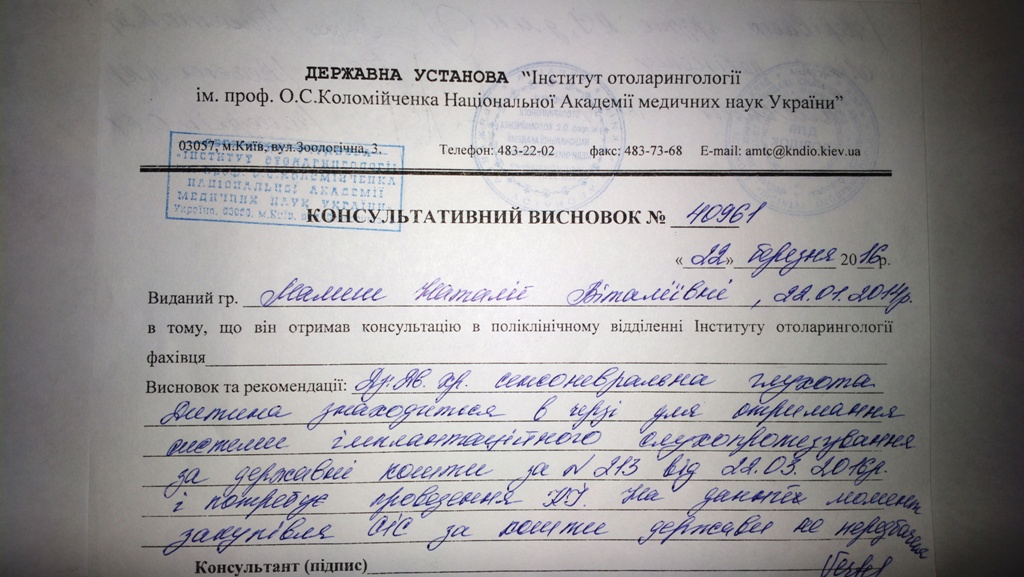 ДЕРЖАВНА УСТАНОВА "Інститут отоларингології
ім. проф. О.С.Коломійченка Національної Академії медичних наук України"
03057, м.Київ, вул.Зоологічна, 3. Телефон: 483-22-02 факс: 483-73-68 E-mail: amtc@kndio.kiev.ua
ІНСТИТУТ ОТОЛАРИНГОЛОГІЇ
КОЛОМІЙЧЕНКА
НАЦІОНАЛЬНОЇ АКАДЕМІЇ
МЕДИЧНИХ НАУК УКРАЇНИ
Україна, 03680, м.Київ,
КОНСУЛЬТАТИВНИЙ ВИСНОВОК № 40961
«22» березня 2016р.
Виданий гр. Наталії Віталіївні, 22.01.2014р
в тому, що він отримав консультацію в поліклінічному відділенні Інституту отоларингології
фахівця
Висновок та рекомендації: хр. сенсоневральна глухота
Дитина знаходиться в черзі для отримання
системи імплантаційного слухопротезування
за державні кошти за N 213 від 22.03.2016р.
і потребує проведення КІ. На даний момент
закупівля за кошти держави не передбачена
Консультант (підпис)